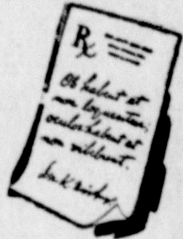 ℞
Os habent et
non loquentur;
oculos habent et
non videbunt.